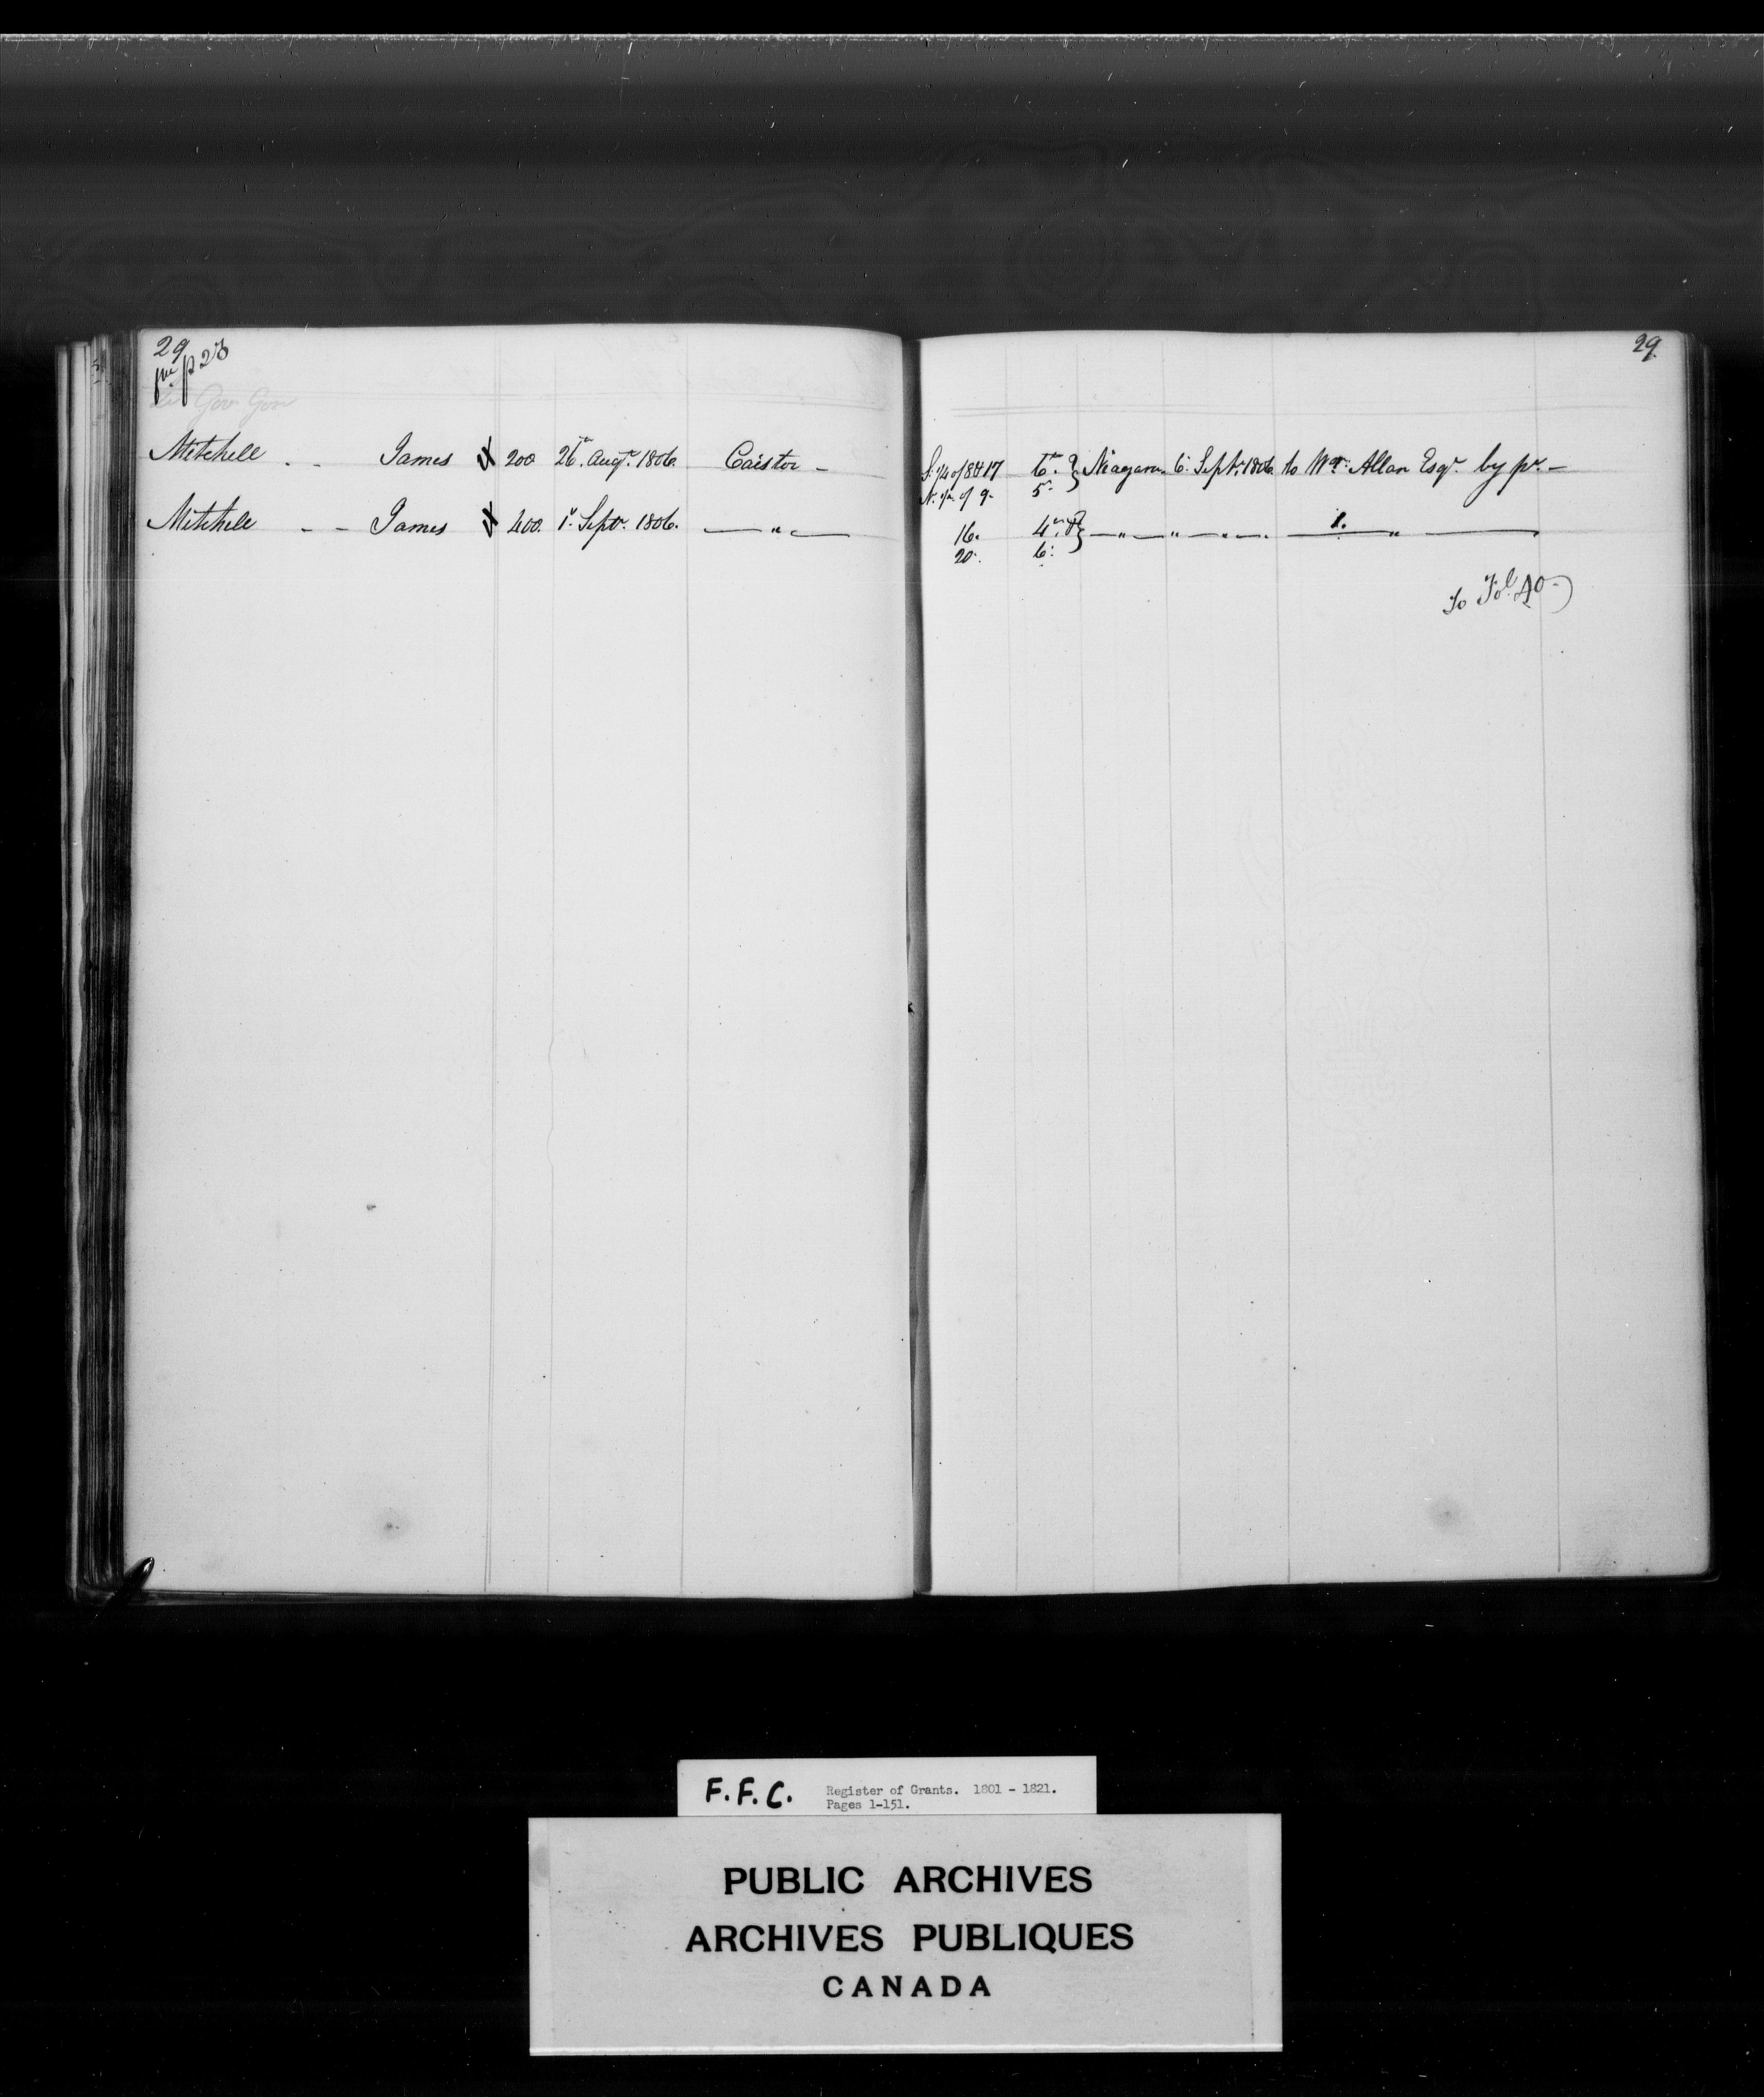 29
p 28
Gov Gore
Mitchell - - James 200 26th Augt. 1806. Caistor -
Mitchell - - James 400. 1st Septr. 1806. — " —
29.
S. 1/4 of 8 & 17 6th } Niagara 6. Septr. 1806. to Wm. Allan Esqr. by pr. -
N. of 9. 5th
16. 4th & } — " — " — " — 1. " —
20. 6.
To Fol. 40
F.F.C. Register of Grants. 1801 - 1821.
Pages 1-151.
PUBLIC ARCHIVES
ARCHIVES PUBLIQUES
CANADA